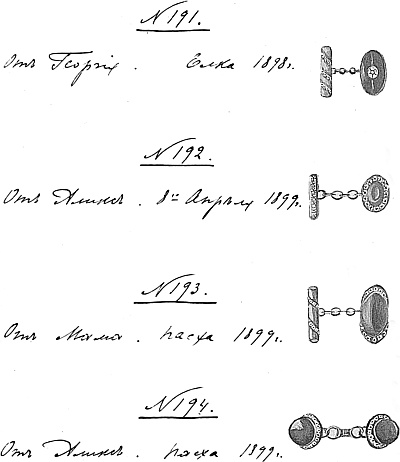 № 191.
Отъ Георгія. Елка 1898 г.
№ 192.
Отъ Аликсъ. 8ᵒᵉ Апрѣля 1899 г.
№ 193.
Отъ Мама. пасха 1899 г.
№ 194.
Отъ Аликсъ. пасха 1899 г.